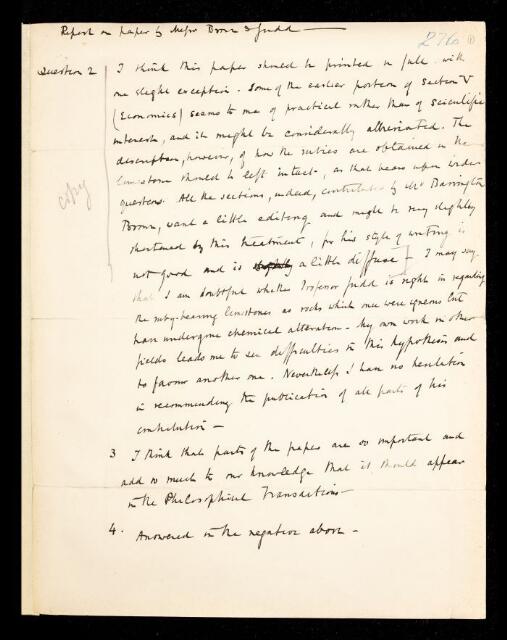 Report on paper by Messrs Brown & Judd —
276 ①
Question 2 I think this paper should be printed in full with
one slight exception. Some of the earlier portion of section V
(Economics) seems to me of practical rather than of scientific
interest, and it might be considerably abbreviated. The
description, however, of how the rubies are obtained in the
limestone should be left intact, as that bears upon wider
questions. All the sections, indeed, contributed by Mr Barrington
Brown, want a little editing and might be very slightly
shortened by this treatment, for his style of writing is
not good and is slightly a little diffuse] – I may say
that I am doubtful whether Professor Judd is right in regarding
the ruby-bearing limestones as rocks which once were igneous but
have undergone chemical alteration – My own work in other
fields leads me to see difficulties in this hypothesis and
to favour another one. Nevertheless I have no hesitation
in recommending the publication of all parts of his
contribution –
copy
3 I think that parts of the paper are so important and
add so much to our knowledge that it should appear
in the Philosophical Transactions –
4. Answered in the negative above –